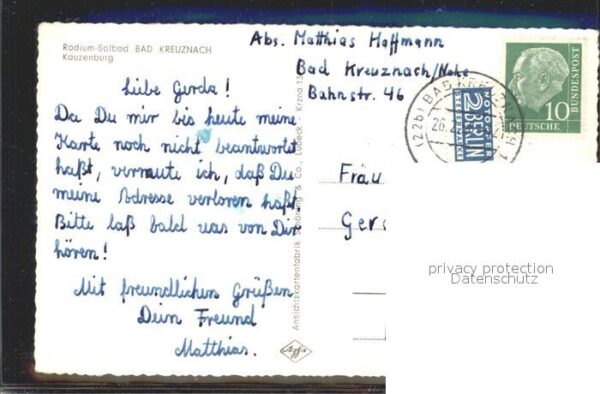 Radium-Solbad BAD KREUZNACH
Kauzenburg
Liebe Gerda!
Da Du mir bis heute meine
Karte noch nicht beantwortet
haßt, vermute ich, daß Du
meine Adresse verloren haßt.
Bitte laß bald was von Dir
hören!
Mit freundlichen Grüßen
Dein Freund
Matthias.
Ansichtskartenfabrik Schöning & Co., Lübeck - Krzna
Abs. Matthias Hoffmann
Bad Kreuznach/Nahe
Bahnstr. 46
Frau
Ger
(22b) BAD
26.
NOTOPFER
2 BERLIN
STEUERMARKE
10
DEUTSCHE
BUNDESPOST
privacy protection
Datenschutz